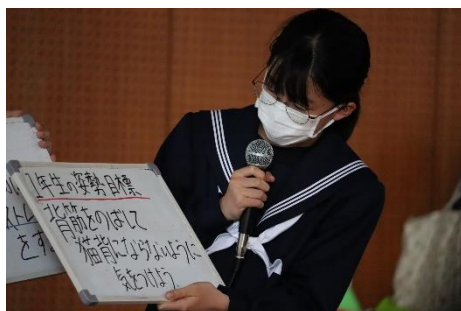 1年生の姿勢目標
背筋をのばして
猫背にならないように
気をつけよう
ストレ
をす